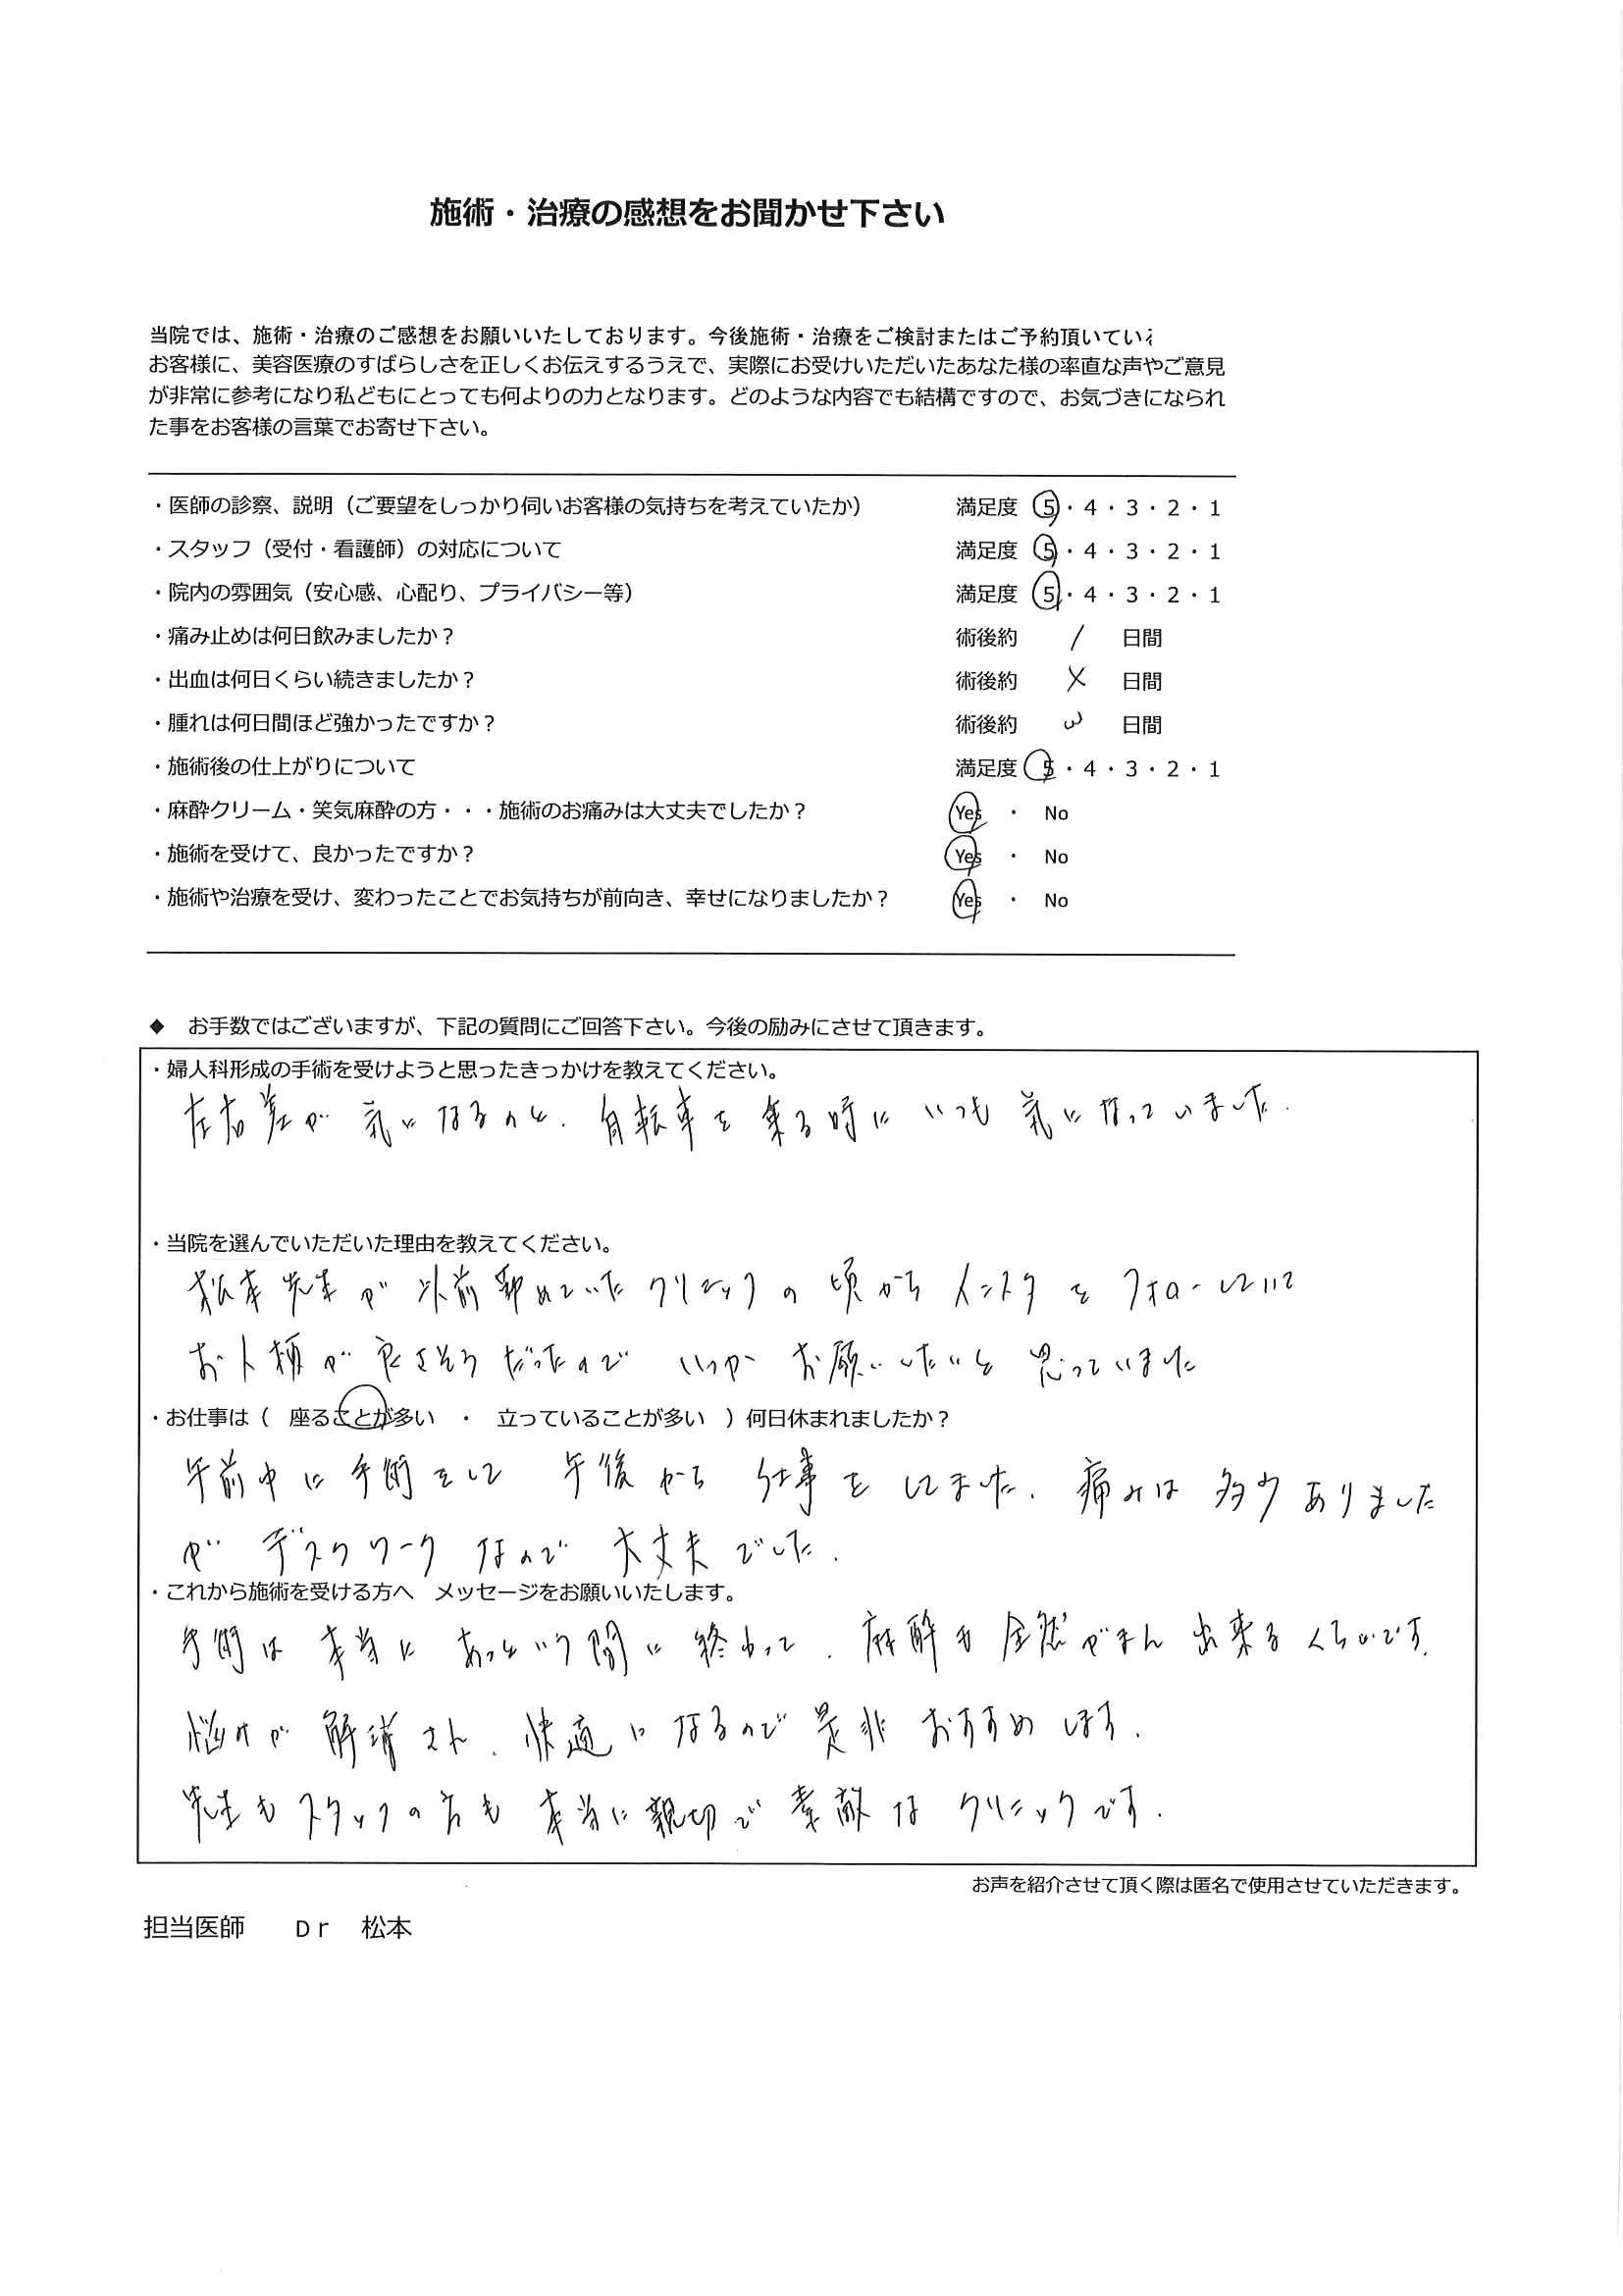 施術・治療の感想をお聞かせ下さい
当院では、施術・治療のご感想をお願いいたしております。今後施術・治療をご検討またはご予約頂いてい
お客様に、美容医療のすばらしさを正しくお伝えするうえで、実際にお受けいただいたあなた様の率直な声やご意見
が非常に参考になり私どもにとっても何よりの力となります。どのような内容でも結構ですので、お気づきになられ
た事をお客様の言葉でお寄せ下さい。
・医師の診察、説明（ご要望をしっかり伺いお客様の気持ちを考えていたか） 満足度 5・4・3・2・1
・スタッフ（受付・看護師）の対応について 満足度 5・4・3・2・1
・院内の雰囲気（安心感、心配り、プライバシー等） 満足度 5・4・3・2・1
・痛み止めは何日飲みましたか？ 術後約 / 日間
・出血は何日くらい続きましたか？ 術後約 × 日間
・腫れは何日間ほど強かったですか？ 術後約 3 日間
・施術後の仕上がりについて 満足度 5・4・3・2・1
・麻酔クリーム・笑気麻酔の方・・・施術のお痛みは大丈夫でしたか？ Yes ・ No
・施術を受けて、良かったですか？ Yes ・ No
・施術や治療を受け、変わったことでお気持ちが前向き、幸せになりましたか？ Yes ・ No
◆ お手数ではございますが、下記の質問にご回答下さい。今後の励みにさせて頂きます。
・婦人科形成の手術を受けようと思ったきっかけを教えてください。
左右差が気になるのと、自転車を乗る時にいつも気になっていました.
・当院を選んでいただいた理由を教えてください。
松本先生が以前勤めていたクリニックの頃からインスタをフォローしていて
お人柄が良さそうだったのでいつかお願いしたいと思っていました
・お仕事は（ 座ることが多い ・ 立っていることが多い ）何日休まれましたか？
午前中に手術をして 午後から仕事をしてました. 痛みは多少ありました
がデスクワークなので大丈夫でした.
・これから施術を受ける方へ メッセージをお願いいたします。
手術は本当にあっという間に終わって、麻酔も全然がまん出来るくらいです.
悩みが解消され、快適になるので是非おすすめします.
先生もスタッフの方も本当に親切で素敵なクリニックです.
お声を紹介させて頂く際は匿名で使用させていただきます。
担当医師 Dr 松本